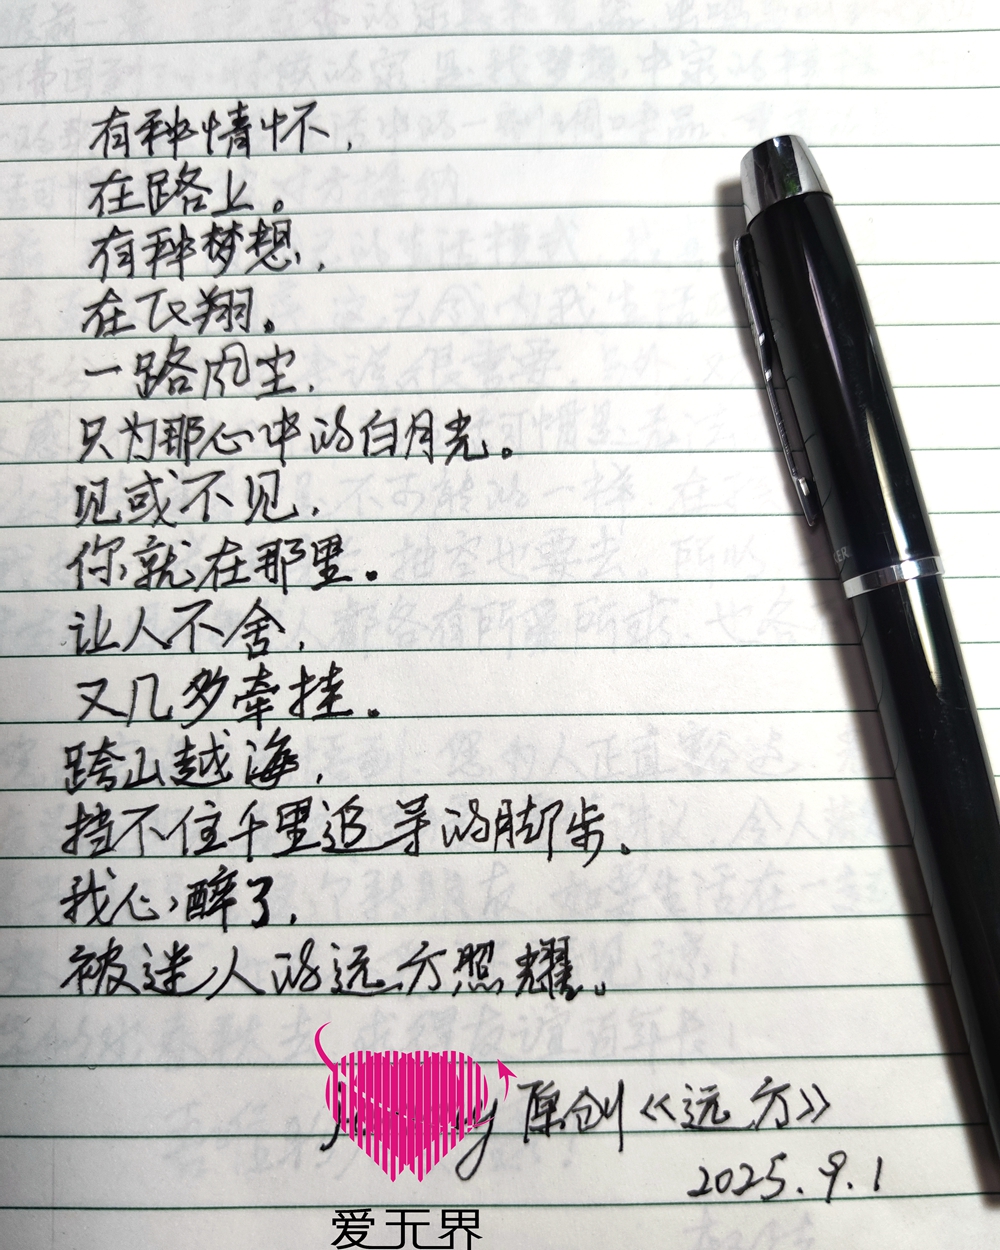 有种情怀，
在路上。
有种梦想，
在飞翔。
一路风尘，
只为那心中的白月光。
见或不见，
你就在那里。
让人不舍，
又几多牵挂。
跨山越海，
挡不住千里追寻的脚步。
我心醉了，
被迷人的远方照耀。
原创《远方》
2025.9.1
爱无界